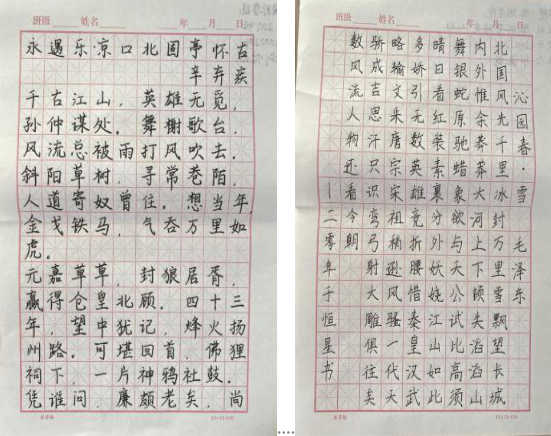 班级 姓名 年 月 日
永遇乐·京口北固亭怀古
辛弃疾
千古江山，英雄无觅，
孙仲谋处。舞榭歌台，
风流总被雨打风吹去。
斜阳草树，寻常巷陌，
人道寄奴曾住。想当年
金戈铁马，气吞万里如
虎。
元嘉草草，封狼居胥，
赢得仓皇北顾。四十三
年，望中犹记，烽火扬
州路。可堪回首，佛狸
祠下，一片神鸦社鼓。
凭谁问，廉颇老矣，尚
班级 姓名 年 月 日
沁园春·雪 毛泽东
北国风光千里冰封万里雪飘望长城
内外惟余莽莽大河上下顿失滔滔山
舞银蛇原驰蜡象欲与天公试比高须
晴日看红装素裹分外妖娆江山如此
多娇引无数英雄竞折腰惜秦皇汉武
略输文采唐宗宋祖稍逊风骚一代天
骄成吉思汗只识弯弓射大雕俱往矣
数风流人物还看今朝
一二零年于恒星书